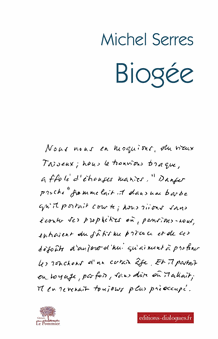 Michel Serres
Biogée
Nous nous en moquions, du vieux
Taiseux ; nous le trouvions braque,
affolé d'étranges manies. "Danger
proche" grommelait-il dans une barbe
qu'il portait courte ; nous riions sans
écouter ses prophéties où, pensions-nous,
entraient du gâtisme précoce et de ces
dépôts d'aujourd'hui qui aiment à prôner
les ronchons d'un certain âge. Et il partait
en voyage, parfois, sans dire où il allait ;
il en revenait toujours plus préoccupé.
Le Pommier
editions-dialogues.fr